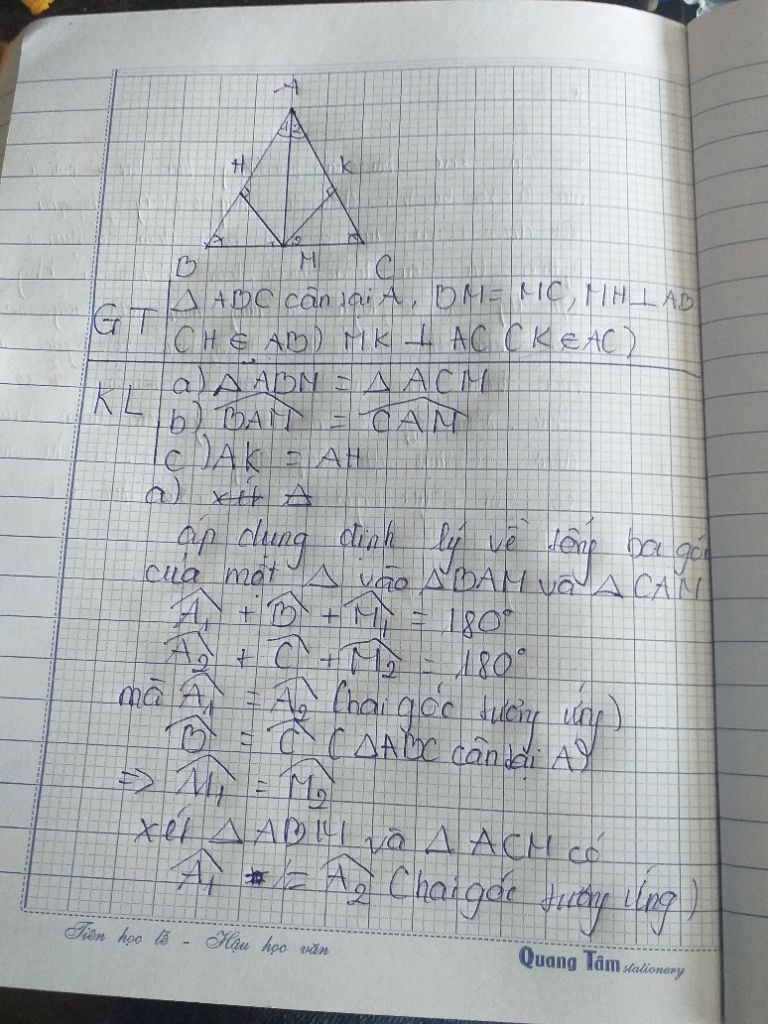 A
1 2
H
K
1 2
B
M
C
GT
Δ ABC cân tại A, BM = MC, MH ⊥ AB
(H ∈ AB) MK ⊥ AC (K ∈ AC)
KL
a) Δ ABM = Δ ACM
b) \widehat{BAM} = \widehat{CAM}
c) AK = AH
a) xét Δ
áp dụng định lý về tổng ba góc
của một Δ vào ΔBAM và Δ CAM
\widehat{A_1} + \widehat{B} + \widehat{M_1} = 180°
\widehat{A_2} + \widehat{C} + \widehat{M_2} = 180°
mà \widehat{A_1} = \widehat{A_2} (hai góc tương ứng)
\widehat{B} = \widehat{C} (ΔABC cân tại A)
=> \widehat{M_1} = \widehat{M_2}
xét Δ ABM và Δ ACM có
\widehat{A_1} = \widehat{A_2} (hai góc tương ứng)
Tiên học lễ - Hậu học văn
Quang Tâm stationery